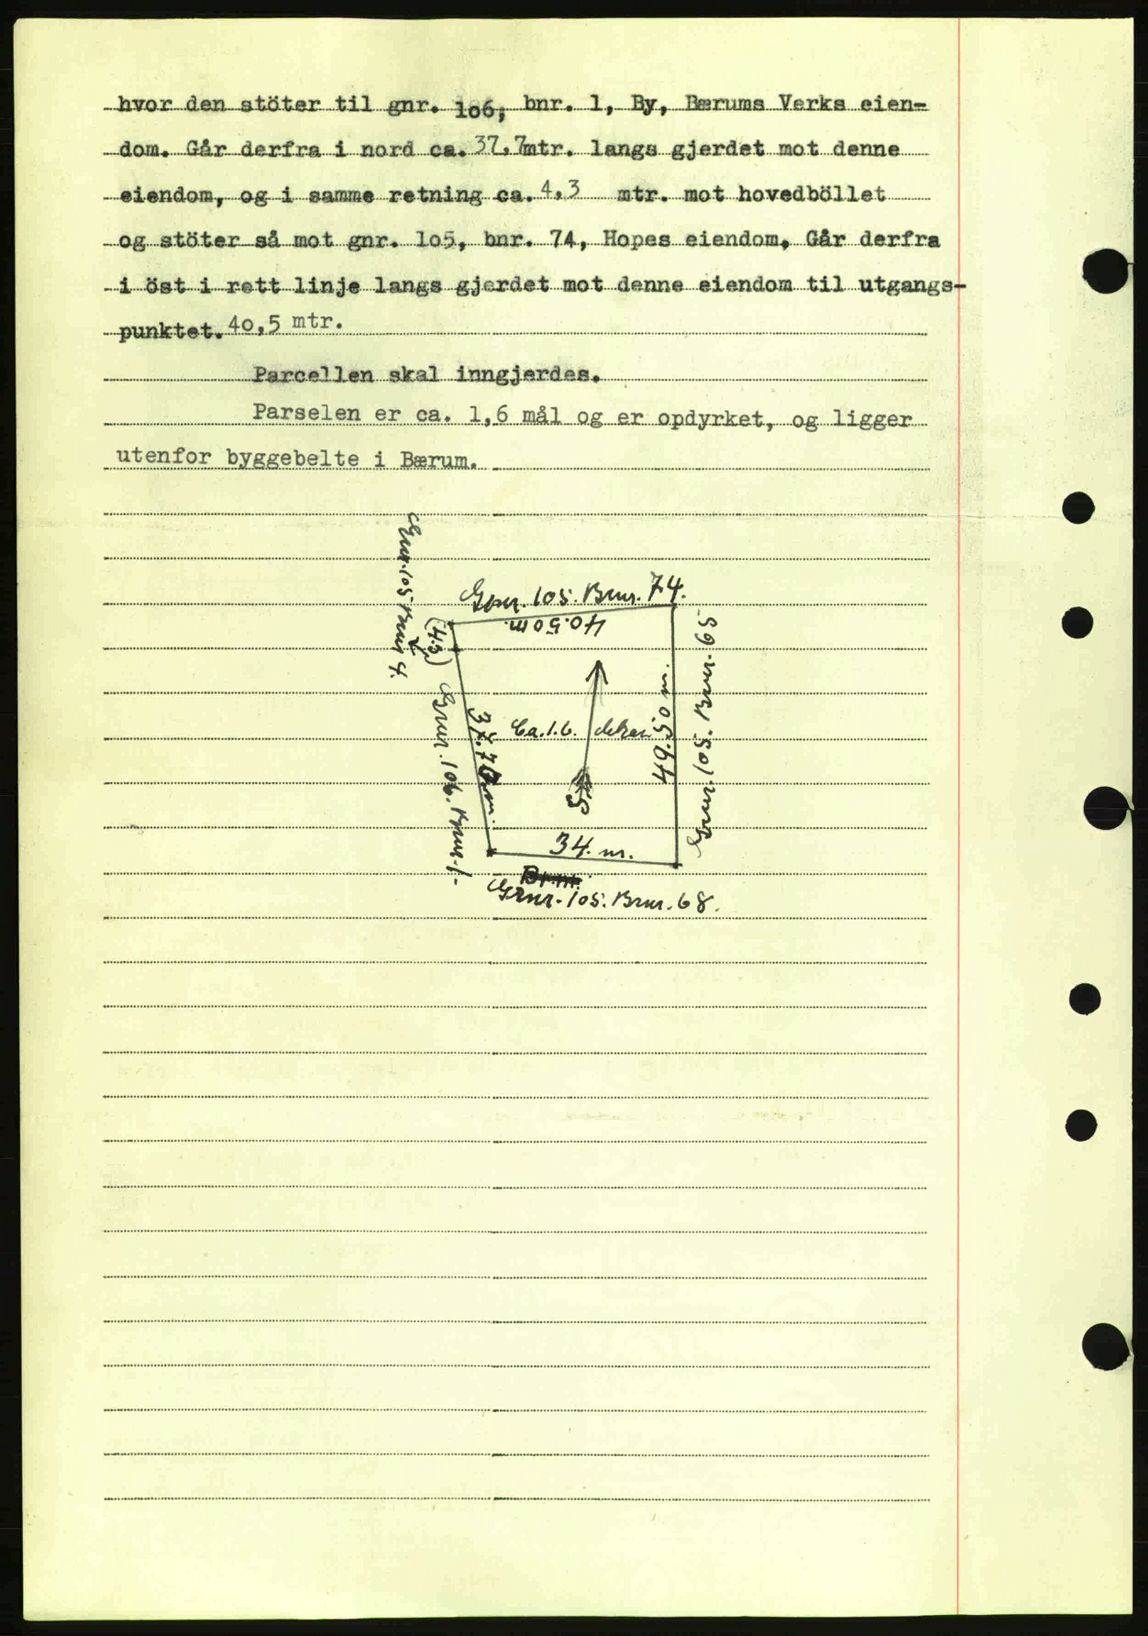 hvor den stöter til gnr. 106, bnr. 1, By, Bærums Verks eien-
dom. Går derfra i nord ca. 37,7mtr. langs gjerdet mot denne
eiendom, og i samme retning ca. 4,3 mtr. mot hovedböllet
og stöter så mot gnr. 105, bnr. 74, Hopes eiendom. Går derfra
i öst i rett linje langs gjerdet mot denne eiendom til utgangs-
punktet. 40,5 mtr.
Parcellen skal inngjerdes.
Parselen er ca. 1,6 mål og er opdyrket, og ligger
utenfor byggebelte i Bærum.
Gnr. 105. Bnr. 74.
40.50 m.
Gnr. 105 Bnr 4.
(4.3)
Gnr. 106. Bnr. 1-
37.70 m.
Ca. 1.6. dekar
49.50 m.
Gnr. 105. Bnr. 65
34. m.
Gnr. 105. Bnr. 68.